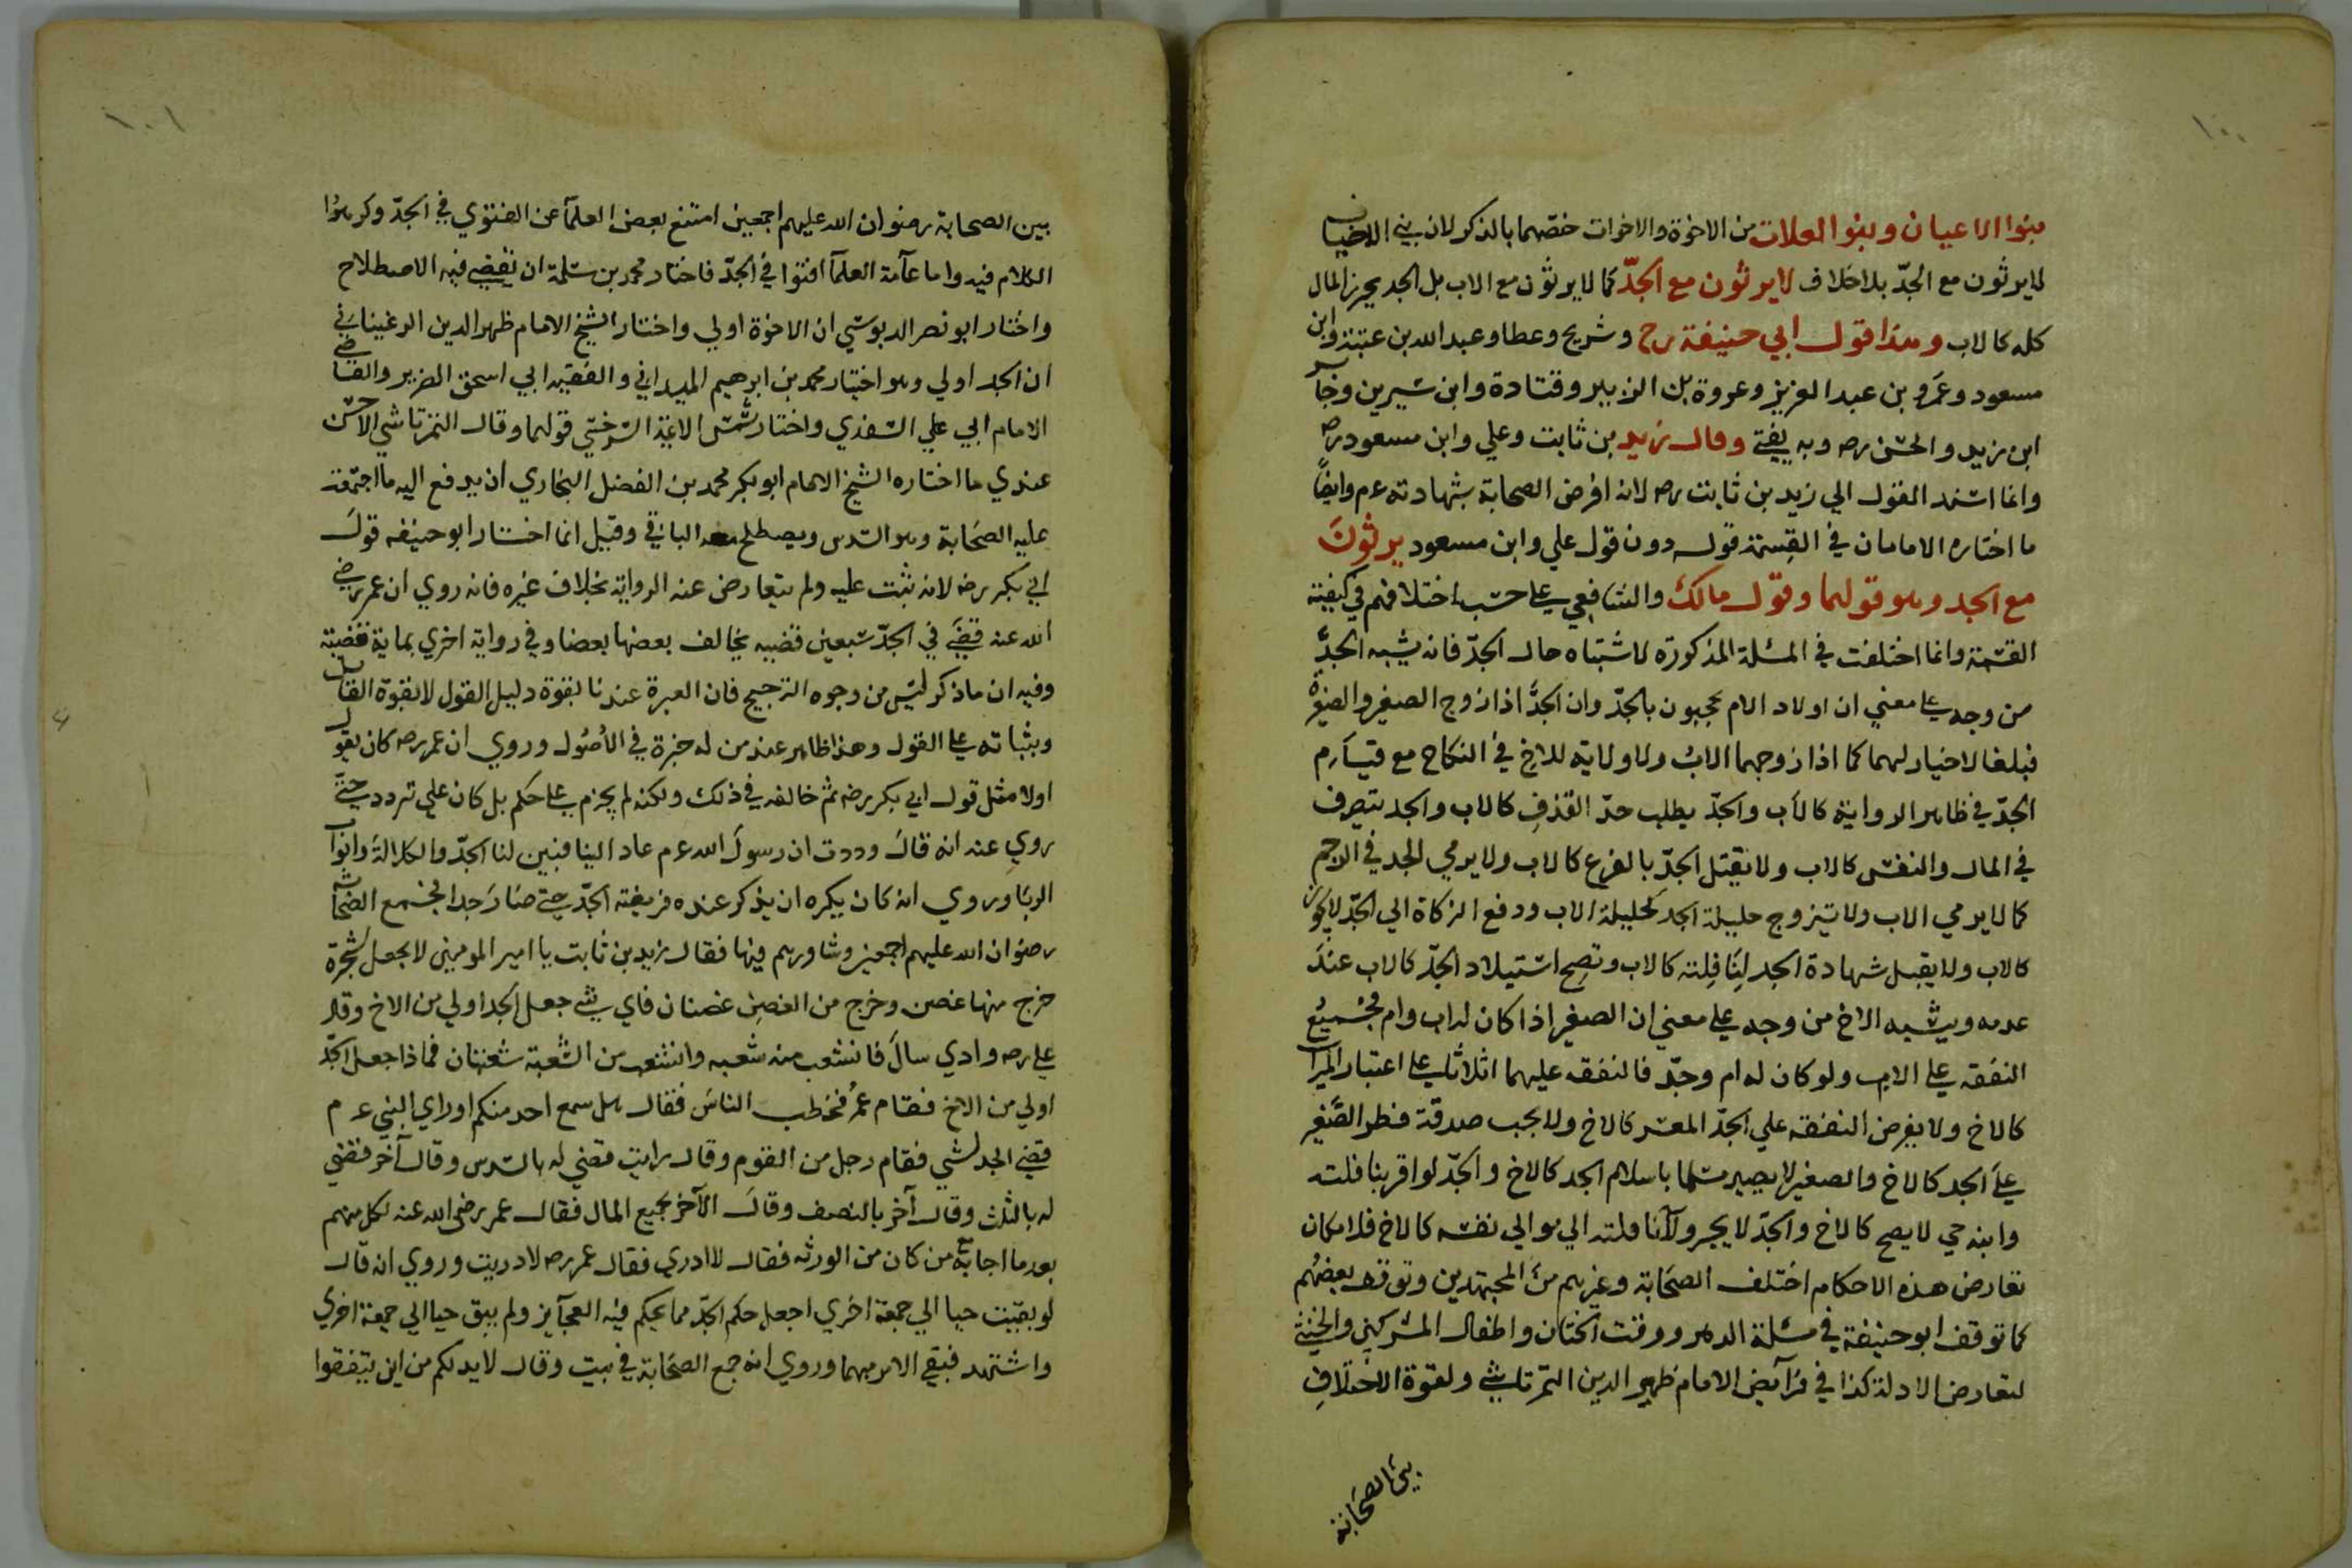 ١٠٠
بنوا الاعيان وبنوا العلات من الاخوة والاخوات خصّهما بالذكر لان بني الاخياف
لايرثون مع الجدّ بلا خلاف لايرثون مع الجدّ كما لايرثون مع الاب بل الجد يحرز المال
كله كالاب وهذا قول ابي حنيفة رح وشريح وعطا وعبد الله بن عتبة وابن
مسعود وعمرو بن عبد العزيز وعروة بن الزبير وقتادة وابن سيرين وجابر
ابن زيد والحسن رضه وبه يفتي وقال زيد بن ثابت وعلي وابن مسعود رضه
وانما اسند القول الي زيد بن ثابت رضه لانه افرض الصحابة بشهادته عم وايضاً
ما اختاره الامامان في القسمة قوله دون قول علي وابن مسعود يرثون
مع الجد وهو قولهما وقول مالك والشافعي علي حسب اختلافهم في كيفية
القسمة وانما اختلفت في المسئلة المذكورة لاشتباه حال الجدّ فانه يشبه الجدَّ
من وجه علي معني ان اولاد الام يحجبون بالجدّ وان الجدَّ اذا زوج الصغير والصغيرة
فبلغا لاخيار لهما كما اذا زوجهما الابُ ولا ولاية للاخ في النكاح مع قيام
الجدّ في ظاهر الرواية كالأب والجدّ يطلب حدّ القذف كالاب والجد يتصرف
في المال والنفس كالاب ولا يقتل الجدّ بالفرع كالاب ولا يرمي الجد في الرجم
كما لا يرمي الاب ولا يتزوج حليلة الجد كحليلة الاب ودفع الزكاة الي الجدّ لايكون
كالاب ولا يقبل شهادة الجد لنافلته كالاب وتصح استيلاد الجدّ كالاب عند
عدمه ويشبه الاخ من وجه علي معني ان الصغير اذا كان له اب وام فجميع
النفقه علي الاب ولو كان له ام وجدّ فالنفقه عليهما اثلاثا علي اعتبار الميراث
كالاخ ولا يفرض النفقه علي الجدّ المعسر كالاخ ولا يجب صدقة فطر الصَّغير
علي الجد كالاخ والصغير لا يصير مسلما باسلام الجد كالاخ والجدّ لو اقر بنافلته
وابنه حي لا يصح كالاخ والجدّ لا يجر ولاء نافلته الي موالي نفسه كالاخ فلامكان
تعارض هذه الاحكام اختلف الصحابة وغيرهم من المجتهدين وتوقف بعضهم
كما توقف ابو حنيفة في مسئلة الدهر ووقت الختان واطفال المشركين والخنثي
لتعارض الادلة كذا في فرآئض الامام ظهير الدين التمرتاشي ولقوة الاختلاف
بين الصحابة
١٠١
بين الصحابة رضوان الله عليهم اجمعين امتنع بعض العلمآ عن الفتوي في الجدّ وكرهوا
الكلام فيه واما عآمة العلمآ افتوا في الجدّ فاختار محمد بن سلمة ان يقضي فيه الاصطلاح
واختار ابو نصر الدبوسي ان الاخوة اولي واختار الشيخ الامام ظهير الدين المرغيناني
ان الجد اولي وهو اختيار محمد بن ابرهيم الميداني والفقيه ابي اسحق الضرير والقاضي
الامام ابي علي السغدي واختار شمس الائمة السرخسي قولهما وقال التمرتاشي الاحسن
عندي ما اختاره الشيخ الامام ابو بكر محمد بن الفضل البخاري ان يدفع اليه ما اجتمعت
عليه الصحابة وهو السدس ويصطلح الباقي وقيل انما اختار ابو حنيفه قول
ابي بكر رضه لانه ثبت عليه ولم يتعارض عنه الرواية بخلاف غيره فانه روي ان عمر رضي
الله عنه قضي في الجدّ سبعين قضيه يخالف بعضها بعضا وفي رواية اخري بماية قضية
وفيه ان ماذكر ليس من وجوه الترجيح فان العبرة عندنا لقوة دليل القول لا لقوة القائل
وبثباته علي القول وهذا ظاهر عند من له خبرة في الأصول وروي ان عمر رضه كان يقول
اولا مثل قول ابي بكر رضه ثم خالفه في ذلك ولكنه لم يجزم علي حكم بل كان علي تردد حتي
روي عنه انه قال وددت ان رسول الله عم عاد الينا فبين لنا الجدّ والكلالة وابوابَ
الربا وروي انه كان يكره ان يذكر عنده فريضة الجدّ حتي صار جدا فجمع الصحابة
رضوان الله عليهم اجمعين وشاورهم فيها فقال زيد بن ثابت يا امير المومنين لا يجعل شجرة
خرج منها غصن وخرج من الغصن غصنان فاي شي جعل الجد اولي من الاخ وقال
علي رضه وادي سال فانشعب منه شعبه وانشعب من الشعبة شعبتان فماذا جعل الجدّ
اولي من الاخ فقام عمر فخطب الناس فقال هل سمع احد منكم او راي النبي عم
قضي الجد لشي فقام رجل من القوم وقال رايت قضي له بالسدس وقال آخر فقضي
له بالثلث وقال آخر بالنصف وقال الآخر بجميع المال فقال عمر رضي الله عنه لكل منهم
بعد ما اجابه من كان من الورثه فقال لا ادري فقال عمر رضه لا دريت وروي انه قال
لو بقيت حيا الي جمعة اخري اجعل حكم الجدّ مما يحكم فيه العجآيز ولم يبق حيا الي جمعة اخري
واستشهد فبقي الامر مبهما وروي انه جمع الصحابة في بيت وقال لا بد لكم من اين يتفقوا